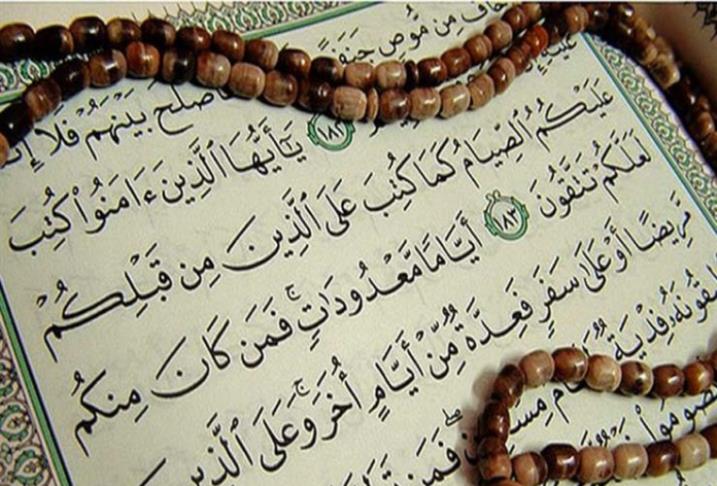 خاف من موص جنفا
صلح بينهم فلا إ
عليه
١٨٢ يَٰٓأَيُّهَا ٱلَّذِينَ ءَامَنُوا۟ كُتِبَ
عَلَيْكُمُ ٱلصِّيَامُ كَمَا كُتِبَ عَلَى ٱلَّذِينَ مِن قَبْلِكُمْ
لَعَلَّكُمْ تَتَّقُونَ ١٨٣ أَيَّامًا مَّعْدُودَٰتٍ ۚ فَمَن كَانَ مِنكُم
مَّرِيضًا أَوْ عَلَىٰ سَفَرٍ فَعِدَّةٌ مِّنْ أَيَّامٍ أُخَرَ ۚ وَعَلَى ٱلَّذِين
يقونهۥ فِدْيَةٌ
فَمَن